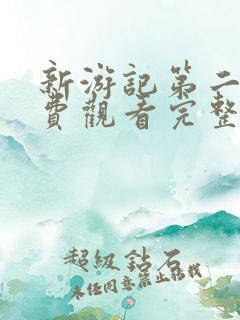 新游記第二
費觀看完整
超級鉆石
未经同意禁止转载